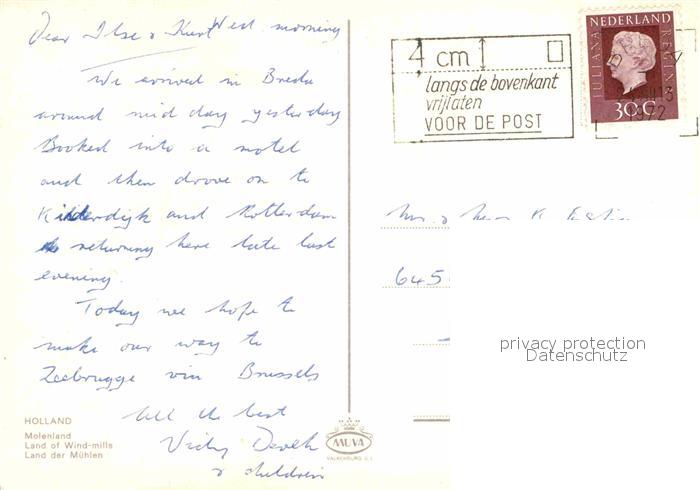 Dear Ilse & Kurt Wed. morning
We arrived in Breda
around mid day yesterday
Booked into a motel
and then drove on to
Kinderdijk and Rotterdam
returning here late last
evening.
Today we hope to
make our way to
Zeebrugge via Brussels
All the best
Vicky
& children
HOLLAND
Molenland
Land of Wind-mills
Land der Mühlen
MUVA
VALKENBURG
4 cm
langs de bovenkant
vrijlaten
VOOR DE POST
NEDERLAND
JULIANA REGINA
30c
1972
Mr & Mrs K
645
privacy protection
Datenschutz